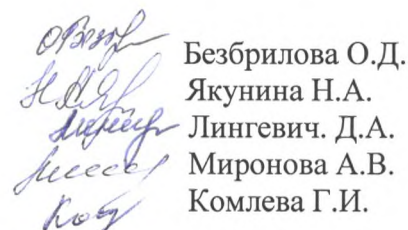 Безбрилова О.Д.
Якунина Н.А.
Лингевич. Д.А.
Миронова А.В.
Комлева Г.И.